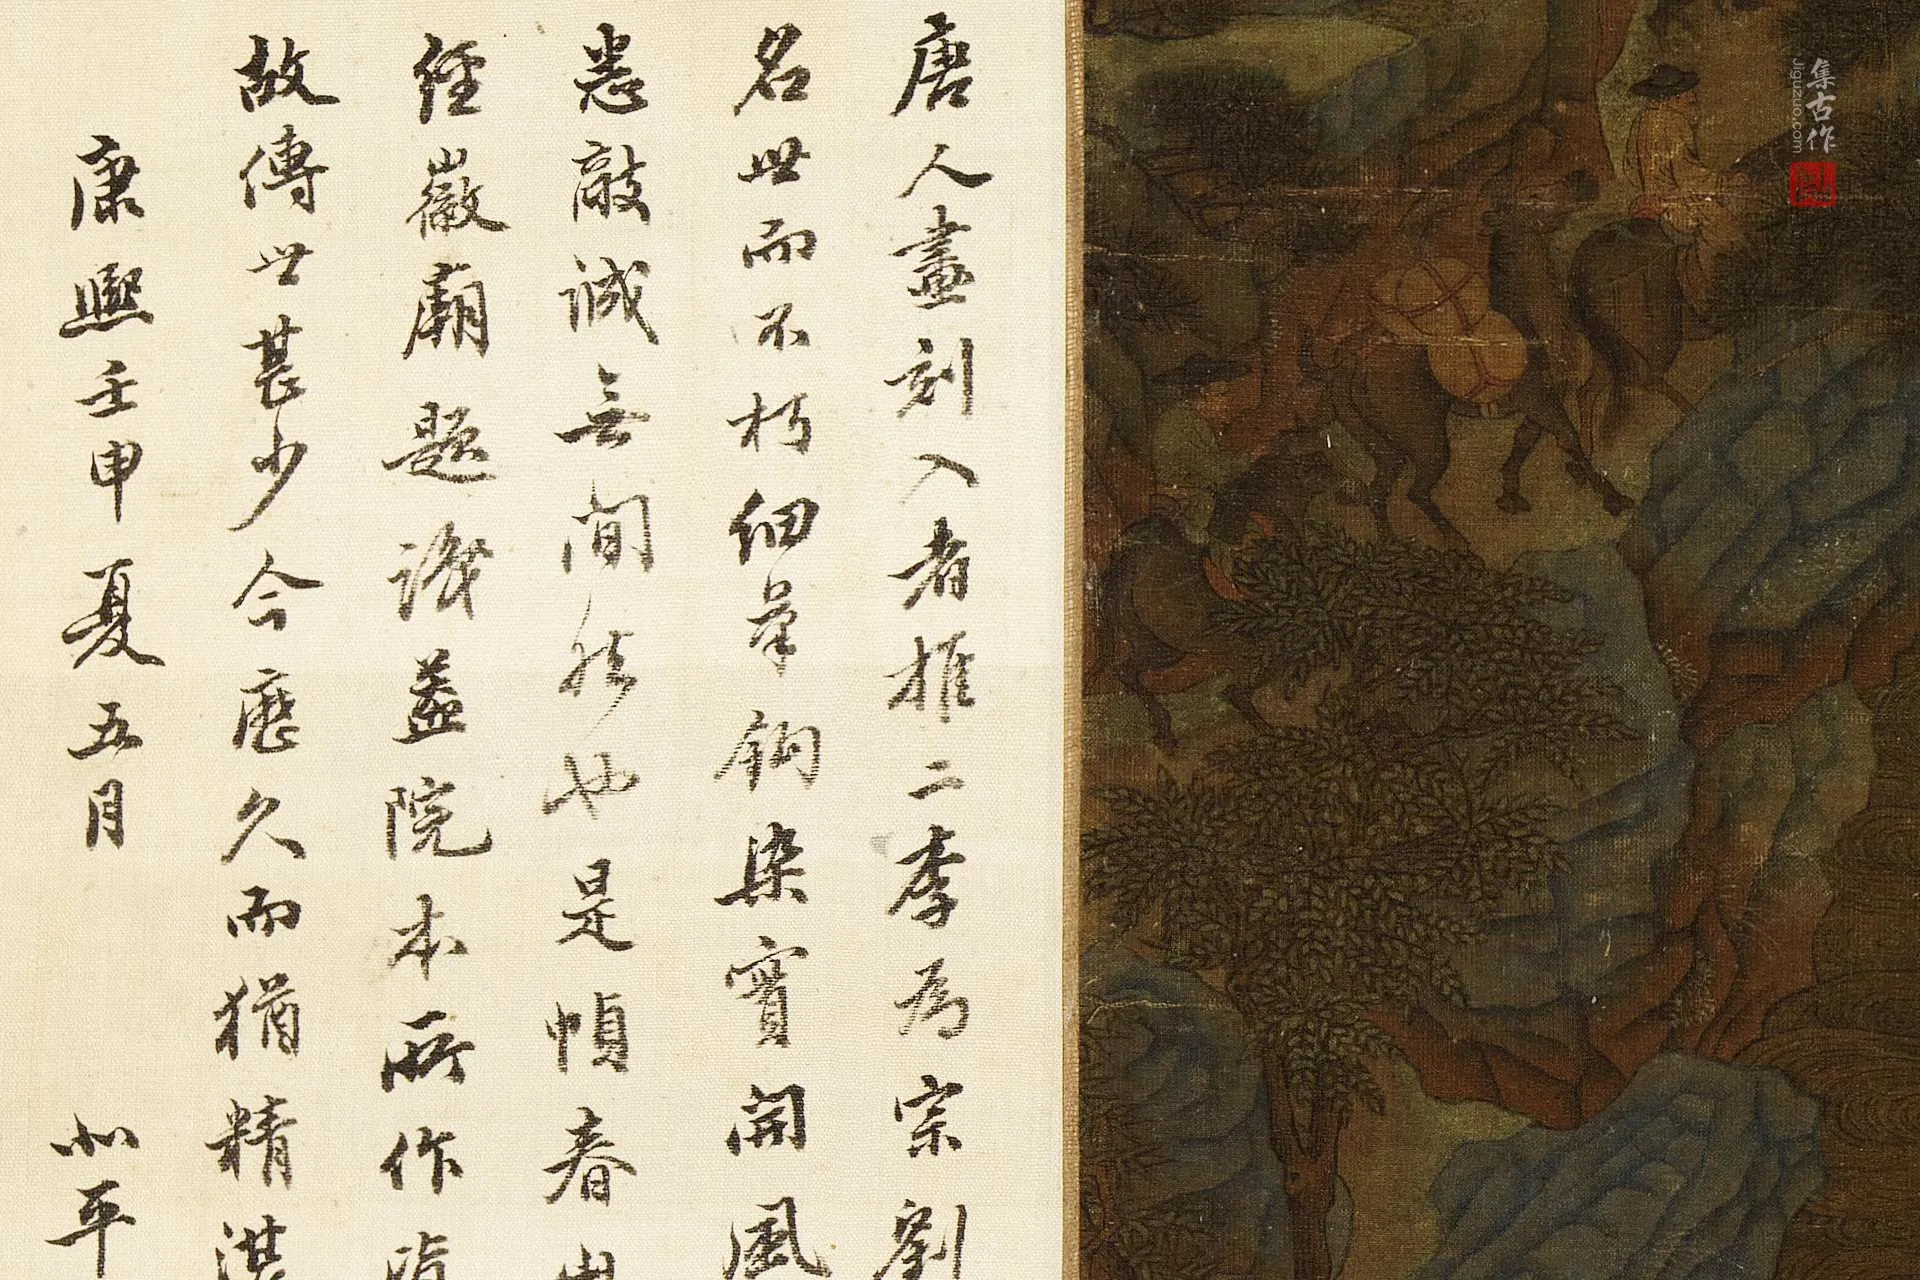 唐人畫刻入者推二李為宗劉
名世而不朽細筆鉤染實開風
悉敲誠無間然也是幀春山
經徽廟題識蓋院本所作
故傳世甚少今歷久而猶精洪
康熙壬申夏五月 北平
集古作
Jiguzuo.com